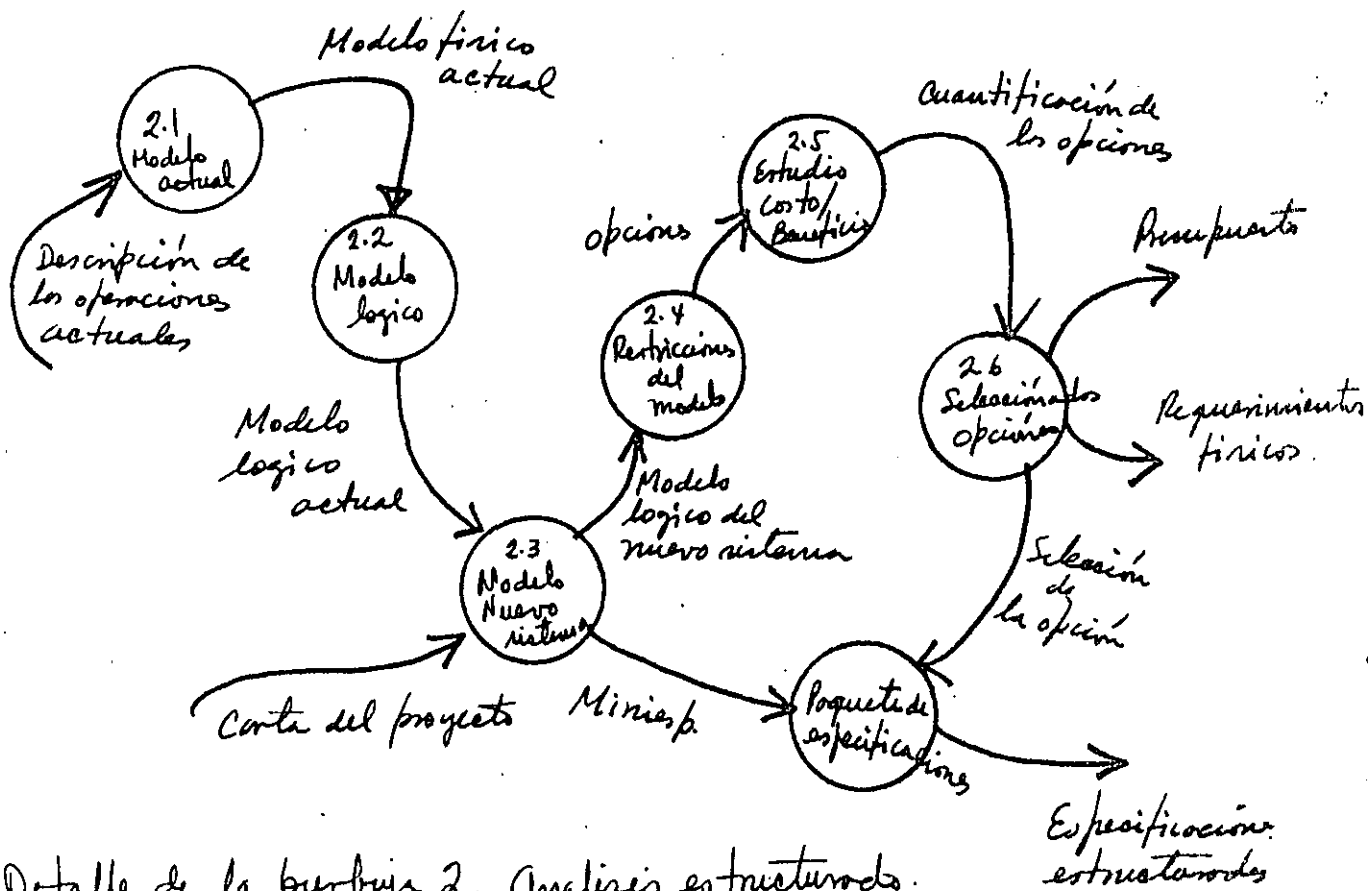 Modelo fisico
actual
2.1
Modelo
actual
Descripción de
las operaciones
actuales
2.2
Modelo
logico
Modelo
logico
actual
2.3
Modelo
Nuevo
sistema
Carta del proyecto
Miniesp.
Modelo
logico del
nuevo sistema
2.4
Restricciones
del
modelo
opciones
2.5
Estudio
Costo/
Beneficio
Cuantificación de
las opciones
2.6
Selección de los
opciones
Presupuesto
Requerimientos
fisicos.
Selección
de
la opción
Paquete de
especificaciones
Especificaciones
estructurados
Detalle de la burbuja 2. Analisis estructurado.